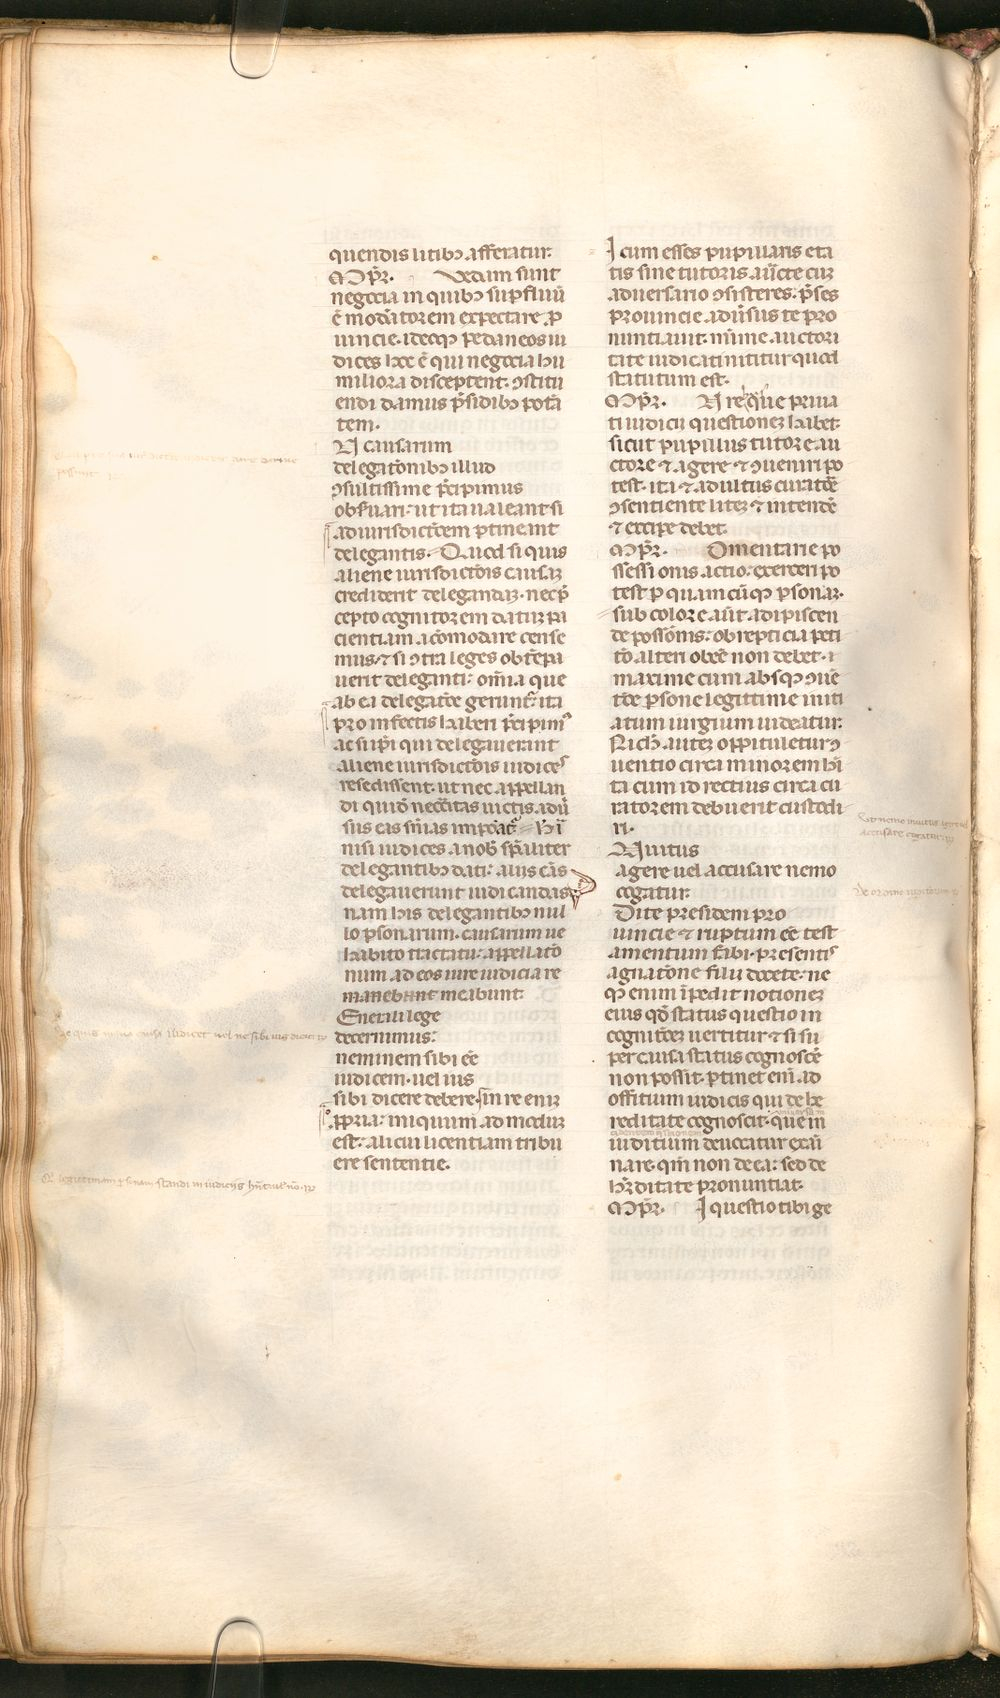 quendis litibꝫ afferatur.
Imp̄r. Uedam sunt
negocia in quibꝫ suꝑfluū
ē modatorem expectare ꝓ
uincie. ideoqꝫ pedaneos iu
dices hoc ē qui negocia hu
miliora disceptent. ɔstitu
endi damus p̄sidibꝫ potā
tem.
N causarum
delegatōnibꝫ illud
ɔsultissime p̄cipimus
obs̄uari: ut ita ualeant si
ad iurisdictōem ꝑtineant
delegantis. Quod si quis
aliene iurisdictōis causaꝫ
crediderit delegandaꝫ. nec p̄
cepto cognitorem datuꝫ pa
cientiam acōmodare cense
mus. ⁊ si ɔtra leges obtēpa
uerit deleganti: om̄ia que
ab ea delegatōe gerunt̄ ita
pro infectis haberi p̄cipimꝰ
ac si ip̄i qui delegauerant
aliene iurisdictōis iudices
resedissent. ut nec appellan
di quidē necc̄itas uictis adū
sus eas sn̄ias
nisi iudices a nob̄ sp̄aliter
delegantibꝫ dati: aliis cās
delegauerunt iudicandas
nam his delegantibꝫ nul
lo ꝑsonarum. causarum ue
habito tractatu: appellatō
num ad eos iure iudicia re
manebunt
Enerali lege
decernimus:
neminem sibi eē
iudicem. uel ius
sibi dicere debere. In re eniꝫ
ꝓpria: iniquum admodum
est: alicui licentiam tribu
ere sententie.
I cum esses pupillaris eta
tis sine tutoris aūcte cuꝫ
aduersario ɔsisteres. p̄ses
prouincie adūsus te pro
nuntiauit. mīme auctori
tate iudicati nititur quod
statutum est.
Imp̄r. N re que priua
ti iudicii questioneꝫ habet
sicut pupillus tutore au
ctore ⁊ agere ⁊ ɔueniri po
test. ita ⁊ adultus curatōe
ɔsentiente liteꝫ ⁊ intendē
⁊ excipe debet.
Imp̄r. Omentarie po
ssessionis actio. exerceri po
test ꝑ quamcūqꝫ ꝑsonaꝫ.
sub colore aūt adipiscen
de possōnis: obrepticia peti
tō alteri obeē non debet. ⁊
maxime cum absqꝫ ɔuē
tōe ꝑsone legittime initi
atum iurgium uideatur.
Nich̄ auteꝫ opituletur ɔ
uentio circa minorem hi
ta cum id rectius circa cu
ratorem debuerit custodi
ri.
Nuitus
agere uel accusare nemo
cogatur.
Dite presidem pro
uincie ⁊ ruptum eē test
amentum fabi presentis
agnatōne filii docete. ne
qꝫ enim īpedit notioneꝫ
eius qd̄ status questio in
cognitōeꝫ uertitur ⁊ si su
per causa status cognoscē
non possit. ꝑtinet eni ad
offitium iudicis qui de he
reditate cognoscit. que in
iuditium deuocatur exāi
nare. qm̄ non de ea: sed de
hr̄ditate pronuntiat.
Imp̄r. I questio tibi ge